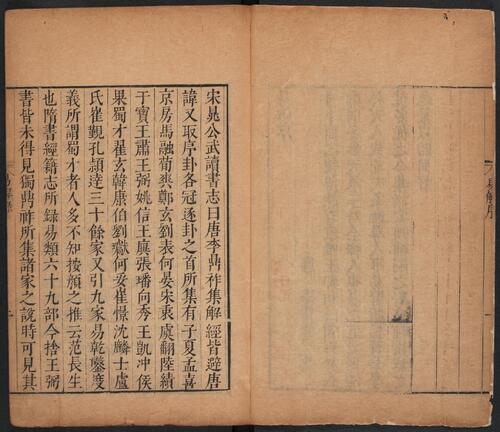 宋晁公武讀書志曰唐李鼎祚集解經皆避唐
諱又取序卦各冠逐卦之首所集有子夏孟喜
京房馬融荀爽鄭玄劉表何晏宋衷虞翻陸績
于寶王肅王弼姚信王廙張璠向秀王凱冲侯
果蜀才翟玄韓康伯劉巘何妥崔憬沈驎士盧
氏崔覲孔頴達三十餘家又引九家易乾鑿度
義所謂蜀才者人多不知按顔之推云范長生
也隋書經籍志所録易類六十九部今捨王弼
書皆未得見獨鼎祚所集諸家之說時可見其
易解序